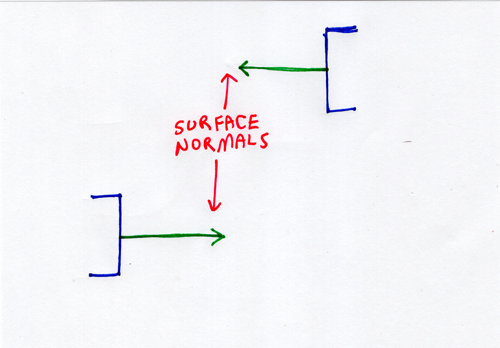 SURFACE
NORMALS